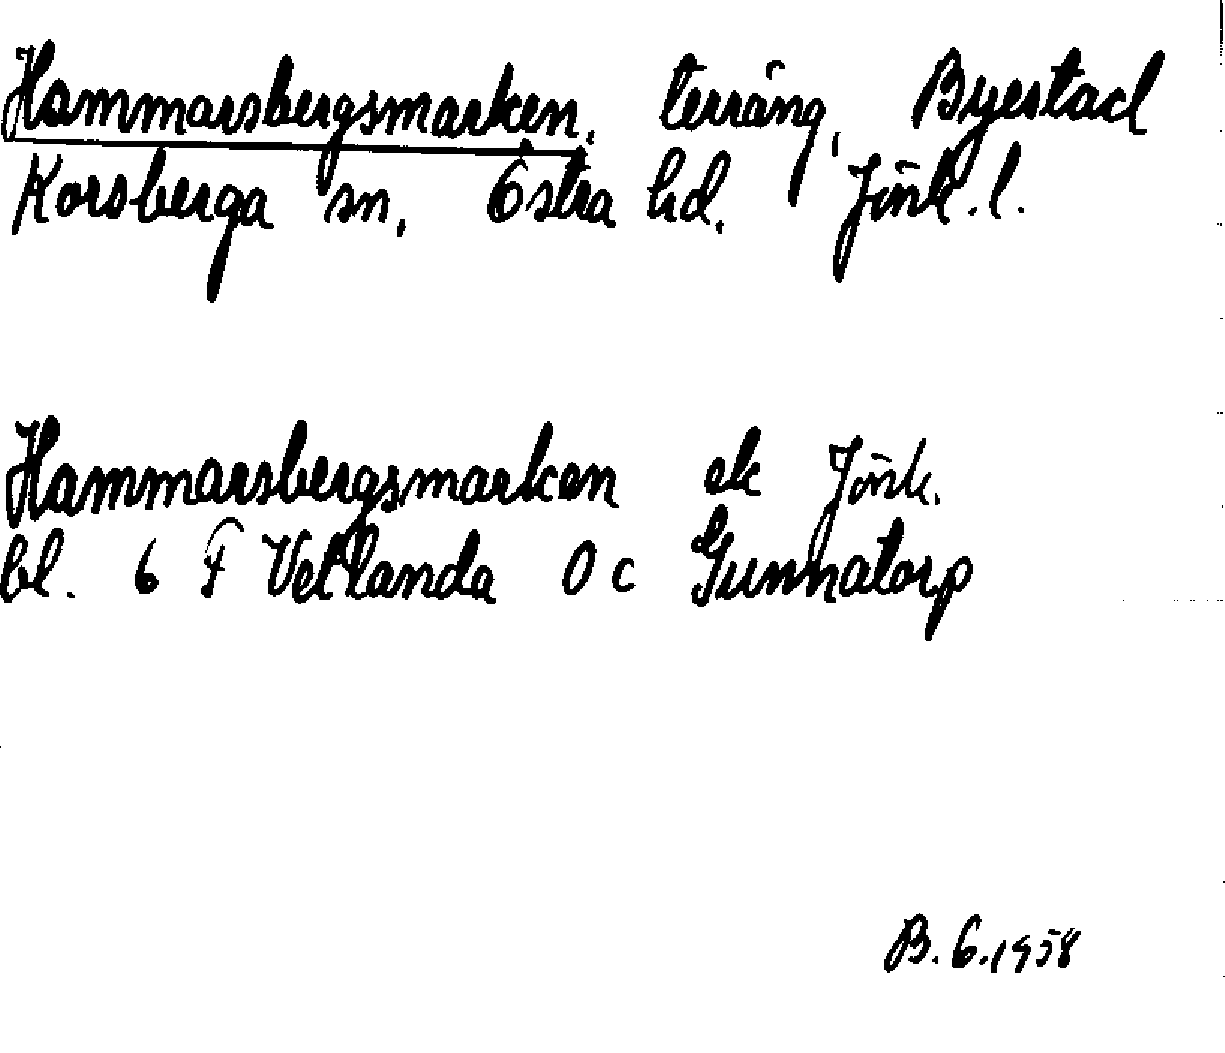 Hammarsbergsmarken, terräng, Byestad
Korsberga sn, Östra hd. Jönk. l.
Hammarsbergsmarken ek Jönk.
bl. 6 F Vetlanda 0 c Gunnatorp
B. 6. 1958